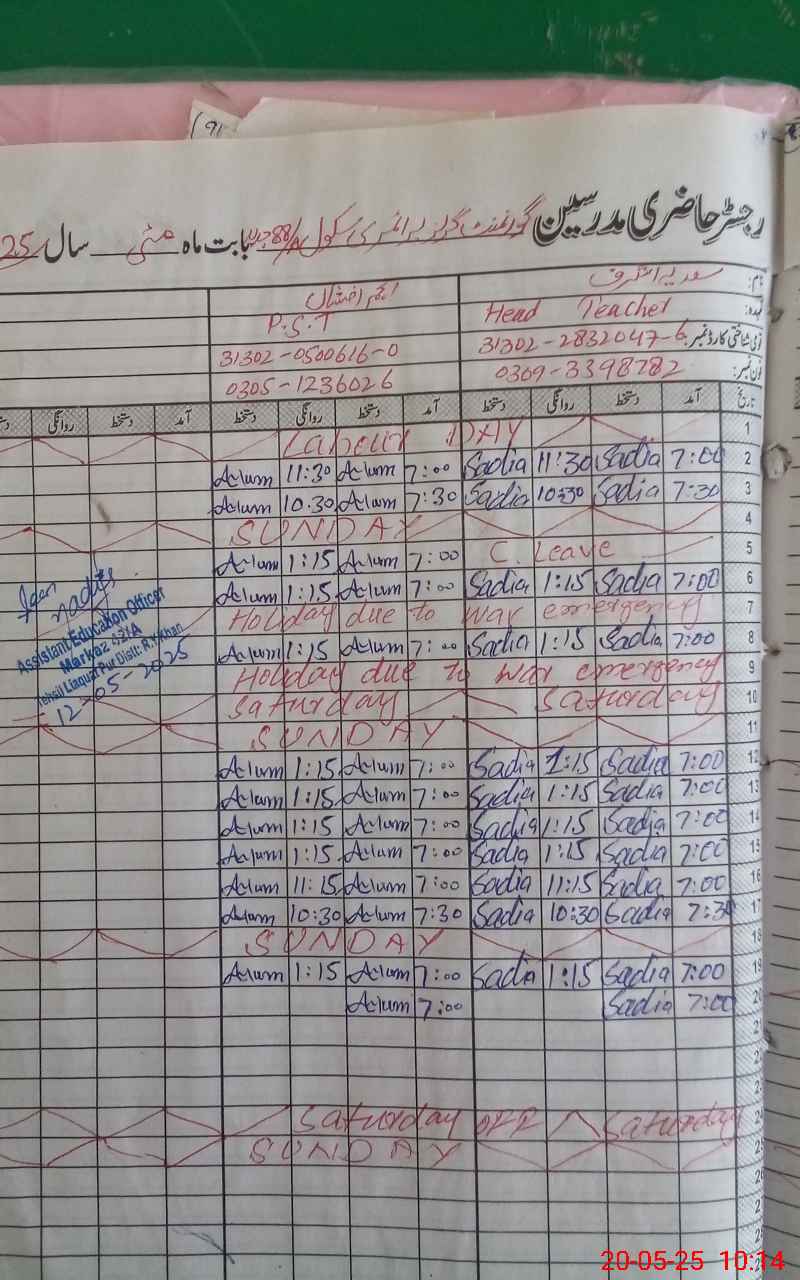 رجسٹر حاضری مدرسین گورنمنٹ گرلز پرائمری سکول 88/A بابت ماہ مئی سال 25
نام: سعدیہ اشرف
عہدہ: Head Teacher P.S.T
قومی شناختی کارڈ نمبر: 31302-2832047-6 31302-0500616-0
فون نمبر: 0309-3398782 0305-1236026
تاریخ آمد دستخط روانگی دستخط آمد دستخط روانگی دستخط آمد دستخط روانگی
1 Labour DAY
2 7:00 Sadia 11:30 Sadia 7:00 A-lum 11:30 A-lum
3 7:30 Sadia 10:30 Sadia 7:30 A-lum 10.30 A-lum
4 SUNDAY
5 C. Leave 7:00 A-lum 1:15 A-lum
6 7:00 Sadia 1:15 Sadia 7:00 A-lum 1:15 A-lum
7 Holiday due to war emergency
8 7:00 Sadia 1:15 Sadia 7:00 A-lum 1:15 A-lum
9 Holiday due to war emergency
10 Saturday Saturday
11 SUNDAY
12 7:00 Sadia 1:15 Sadia 7:00 A-lum 1:15 A-lum
13 7:00 Sadia 1:15 Sadia 7:00 A-lum 1:15 A-lum
14 7:00 Sadia 1:15 Sadia 7:00 A-lum 1:15 A-lum
15 7:00 Sadia 1:15 Sadia 7:00 A-lum 1:15 A-lum
16 7:00 Sadia 11:15 Sadia 7:00 A-lum 11:15 A-lum
17 7:30 Sadia 10:30 Sadia 7:30 A-lum 10:30 A-lum
18 SUNDAY
19 7:00 Sadia 1:15 Sadia 7:00 A-lum 1:15 A-lum
20 7:00 Sadia 7:00 A-lum
21
24 Saturday OFF Saturday
25 SUNDAY
26
Assistant Education Officer
Markaz
Tehsil Liaquat Pur Distt: R.Y.Khan
12-05-2025
20-05-25 10:14